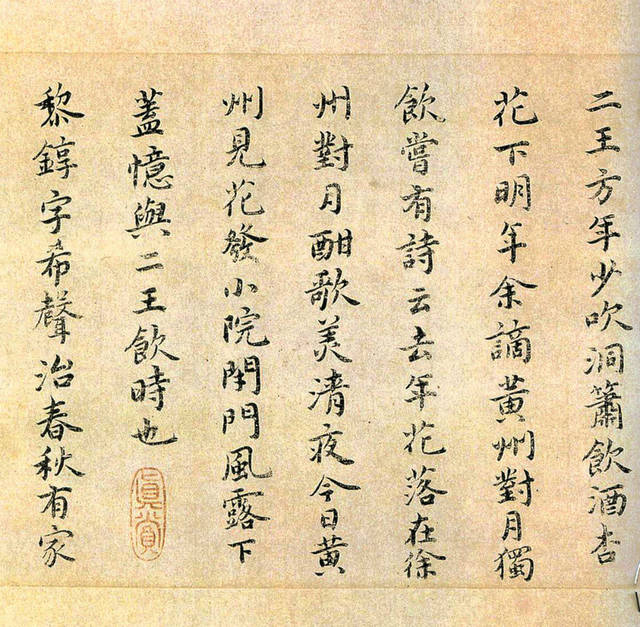 二王方年少吹洞簫飲酒杏
花下明年余謫黃州對月獨
飲嘗有詩云去年花落在徐
州對月酣歌美清夜今日黃
州見花發小院閉門風露下
蓋憶與二王飲時也
真賞
黎錞字希聲治春秋有家